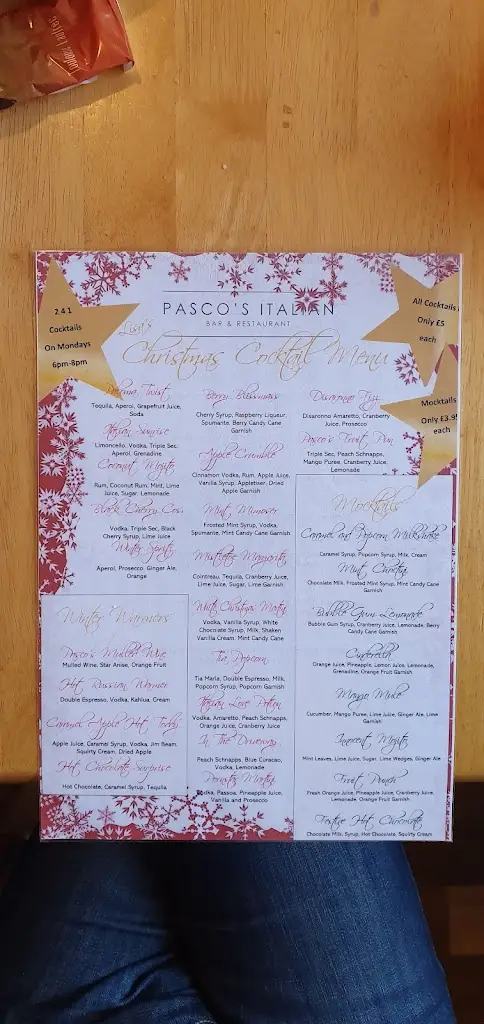 2 4 1
Cocktails
On Mondays
6pm-8pm
PASCO'S ITALIAN
BAR & RESTAURANT
Lisa's
Christmas Cocktail Menu
All Cocktails
Only £5
each
Mocktails
Only £3.95
each
Paloma Twist
Tequila, Aperol, Grapefruit Juice,
Soda
Italian Sunrise
Limoncello, Vodka, Triple Sec,
Aperol, Grenadine
Coconut Mojito
Rum, Coconut Rum, Mint, Lime
Juice, Sugar, Lemonade
Black Cherry Cos
Vodka, Triple Sec, Black
Cherry Syrup, Lime Juice
Winter Spritz
Aperol, Prosecco, Ginger Ale,
Orange
Winter Warmers
Pasco's Mulled Wine
Mulled Wine, Star Anise, Orange Fruit
Hot Russian Warmer
Double Espresso, Vodka, Kahlua, Cream
Caramel Apple Hot Toddy
Apple Juice, Caramel Syrup, Vodka, Jim Beam,
Squirty Cream, Dried Apple
Hot Chocolate Surprise
Hot Chocolate, Caramel Syrup, Tequila
Berry Blissmass
Cherry Syrup, Raspberry Liqueur,
Spumante, Berry Candy Cane
Garnish
Apple Crumble
Cinnamon Vodka, Rum, Apple Juice,
Vanilla Syrup, Appletiser, Dried
Apple Garnish
Mint Mimoser
Frosted Mint Syrup, Vodka,
Spumante, Mint Candy Cane Garnish
Mistletoe Margarita
Cointreau, Tequila, Cranberry Juice,
Lime Juice, Sugar, Lime Garnish
White Christmas Martini
Vodka, Vanilla Syrup, White
Chocolate Syrup, Milk, Shaken
Vanilla Cream, Mint Candy Cane
Tia Popcorn
Tia Maria, Double Espresso, Milk,
Popcorn Syrup, Popcorn Garnish
Italian Love Potion
Vodka, Amaretto, Peach Schnapps,
Orange Juice, Cranberry Juice
In The Driveway
Peach Schnapps, Blue Curacao,
Vodka, Lemonade
Pornstar Martini
Vodka, Passoa, Pineapple Juice,
Vanilla and Prosecco
Disaronno Fizz
Disaronno Amaretto, Cranberry
Juice, Prosecco
Pasco's Fruit Pun
Triple Sec, Peach Schnapps,
Mango Puree, Cranberry Juice,
Lemonade
Mocktails
Caramel and Popcorn Milkshake
Caramel Syrup, Popcorn Syrup, Milk, Cream
Mint Choctini
Chocolate Milk, Frosted Mint Syrup, Mint Candy Cane
Garnish
Bubble Gum Lemonade
Bubble Gum Syrup, Cranberry Juice, Lemonade, Berry
Candy Cane Garnish
Cinderella
Orange Juice, Pineapple, Lemon Juice, Lemonade,
Grenadine, Orange Fruit Garnish
Mango Mule
Cucumber, Mango Puree, Lime Juice, Ginger Ale, Lime
Garnish
Innocent Mojito
Mint Leaves, Lime Juice, Sugar, Lime Wedges, Ginger Ale
Fruit Punch
Fresh Orange Juice, Pineapple Juice, Cranberry Juice,
Lemonade, Orange Fruit Garnish
Festive Hot Chocolate
Chocolate Milk, Syrup, Hot Chocolate, Squirty Cream